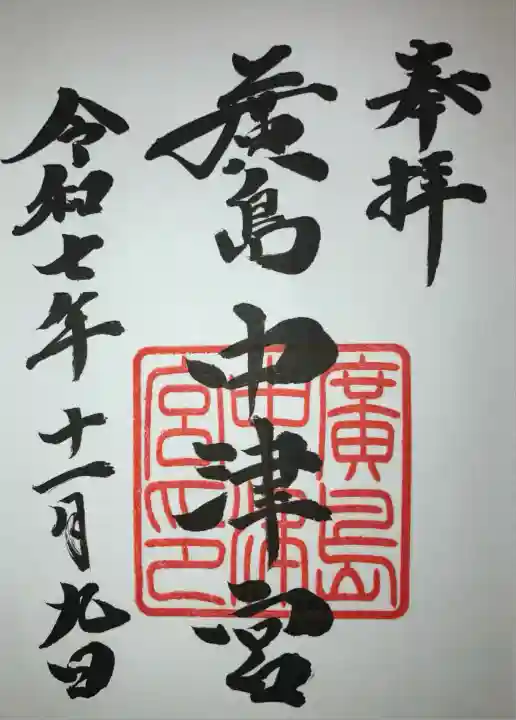 奉拝
廣島中津宮
令和七年十一月九日
廣島
中津
宮之印